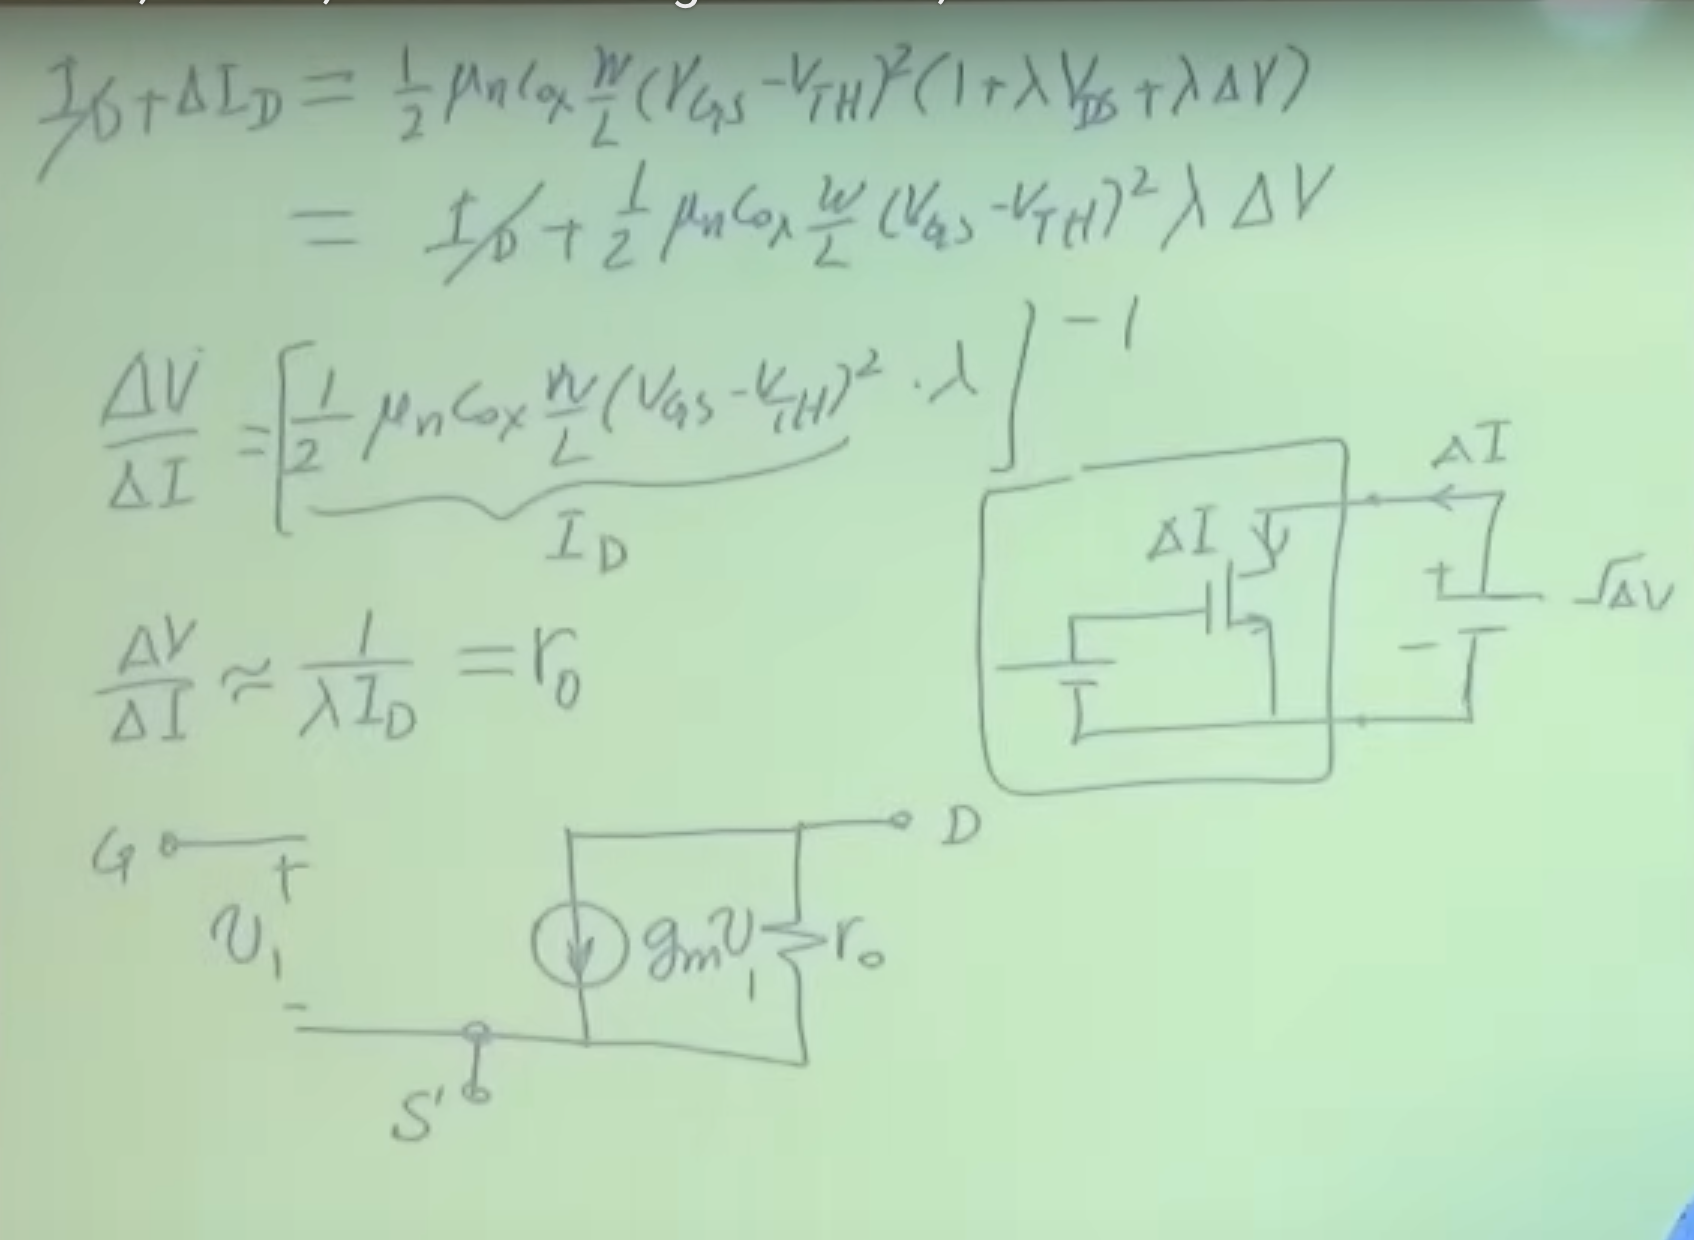 I_D + ΔI_D = 1/2 μnCox W/L (VGS - VTH)² (1 + λVDS + λΔV)
= I_D + 1/2 μnCox W/L (VGS - VTH)² λΔV
ΔV/ΔI = [1/2 μnCox W/L (VGS - VTH)² · λ]⁻¹
I_D
ΔI
ΔI
+
ΔV
-
ΔV/ΔI ≈ 1/(λI_D) = r₀
G
+
D
v₁
gmv₁
r₀
-
S